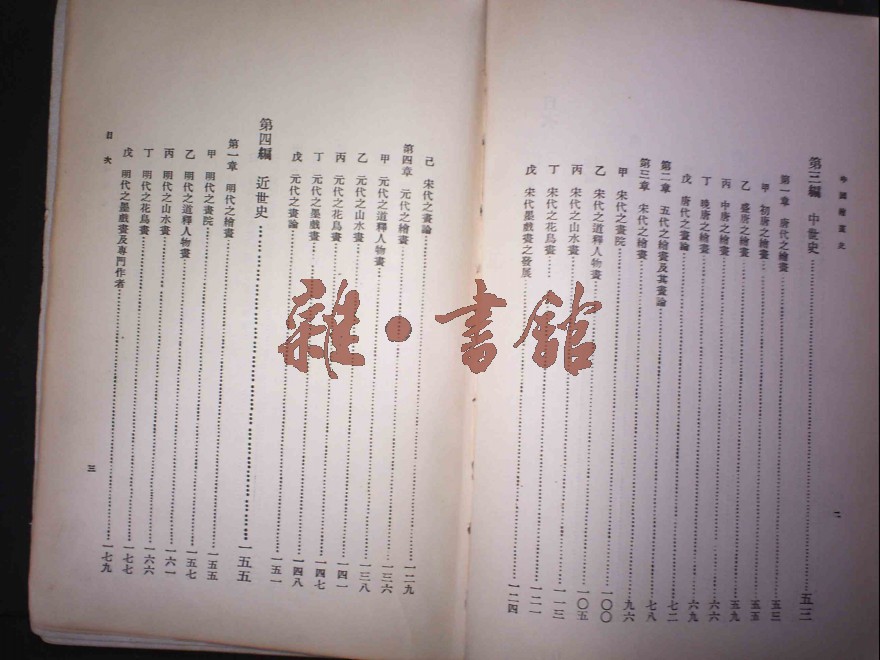 中國繪畫史
二
第三編 中世史……五三
第一章 唐代之繪畫……五三
甲 初唐之繪畫……五五
乙 盛唐之繪畫……五九
丙 中唐之繪畫……六六
丁 晚唐之繪畫……六九
戊 唐代之畫論……七二
第二章 五代之繪畫及其畫論……七八
第三章 宋代之繪畫……九六
甲 宋代之畫院……一〇〇
乙 宋代之道釋人物畫……一〇五
丙 宋代之山水畫……一一三
丁 宋代之花鳥畫……一二一
戊 宋代墨戲畫之發展……一二四
己 宋代之畫論……一二九
第四章 元代之繪畫……一三六
甲 元代之道釋人物畫……一三八
乙 元代之山水畫……一四一
丙 元代之花鳥畫……一四七
丁 元代之墨戲畫……一四八
戊 元代之畫論……一五一
第四編 近世史……一五五
第一章 明代之繪畫……一五五
甲 明代之畫院……一五七
乙 明代之道釋人物畫……一六一
丙 明代之山水畫……一六六
丁 明代之花鳥畫……一七七
戊 明代之墨戲畫及專門作者……一七九
目次
三
雜·書館